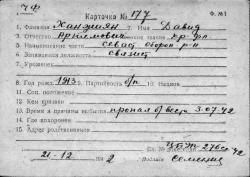 ЧФ Ф. №1
Карточка № 177
1. Фамилия Ханджиян 2. Имя Давид
3. Отчество Артемович звание кр-фл
5. Наименование части Севаст оборон р-н
6. Занимаемая должность связист
7. Уроженец
8. Год рожд. 1913 9. Партийность б/п 10. Национ.
11. Кем призван
12. Время и причина события пропал б/вест. 3.07.42
14. Где похоронен
15. Адрес родственников
21-12 2